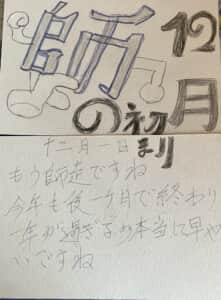 師
12月
の初まり
十二月一日
もう師走ですね
今年も後一ケ月で終わり
一年が過ぎるの本当に早や
いですね